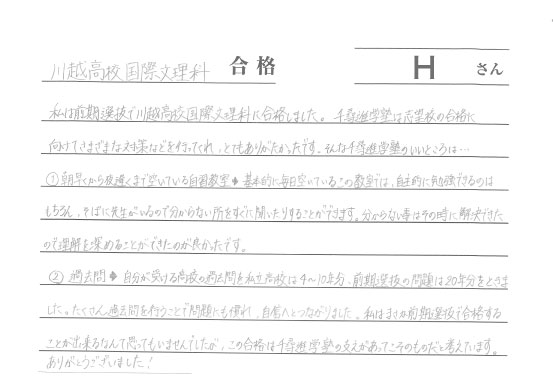 川越高校国際文理科 合格 H さん
私は前期選抜で川越高校国際文理科に合格しました。千尋進学塾は志望校の合格に
向けてさまざまな対策などを行ってくれ、とてもありがたかったです。そんな千尋進学塾のいいところは…
①朝早くから夜遅くまで空いている自習教室◆基本的に毎日空いているこの教室では、自主的に勉強できるのは
もちろん、そばに先生がいるので分からない所をすぐに聞いたりすることができます。分からない事はその時に解決できた
ので理解を深めることができたのが良かったです。
②過去問◆自分が受ける高校の過去問を私立高校は4~10年分、前期選抜の問題は20年分をときま
した。たくさん過去問を行うことで問題にも慣れ、自信へとつながりました。私はまさか前期選抜で合格する
ことが出来るなんて思ってもいませんでしたが、この合格は千尋進学塾の支えがあってこそのものだと考えています。
ありがとうございました!